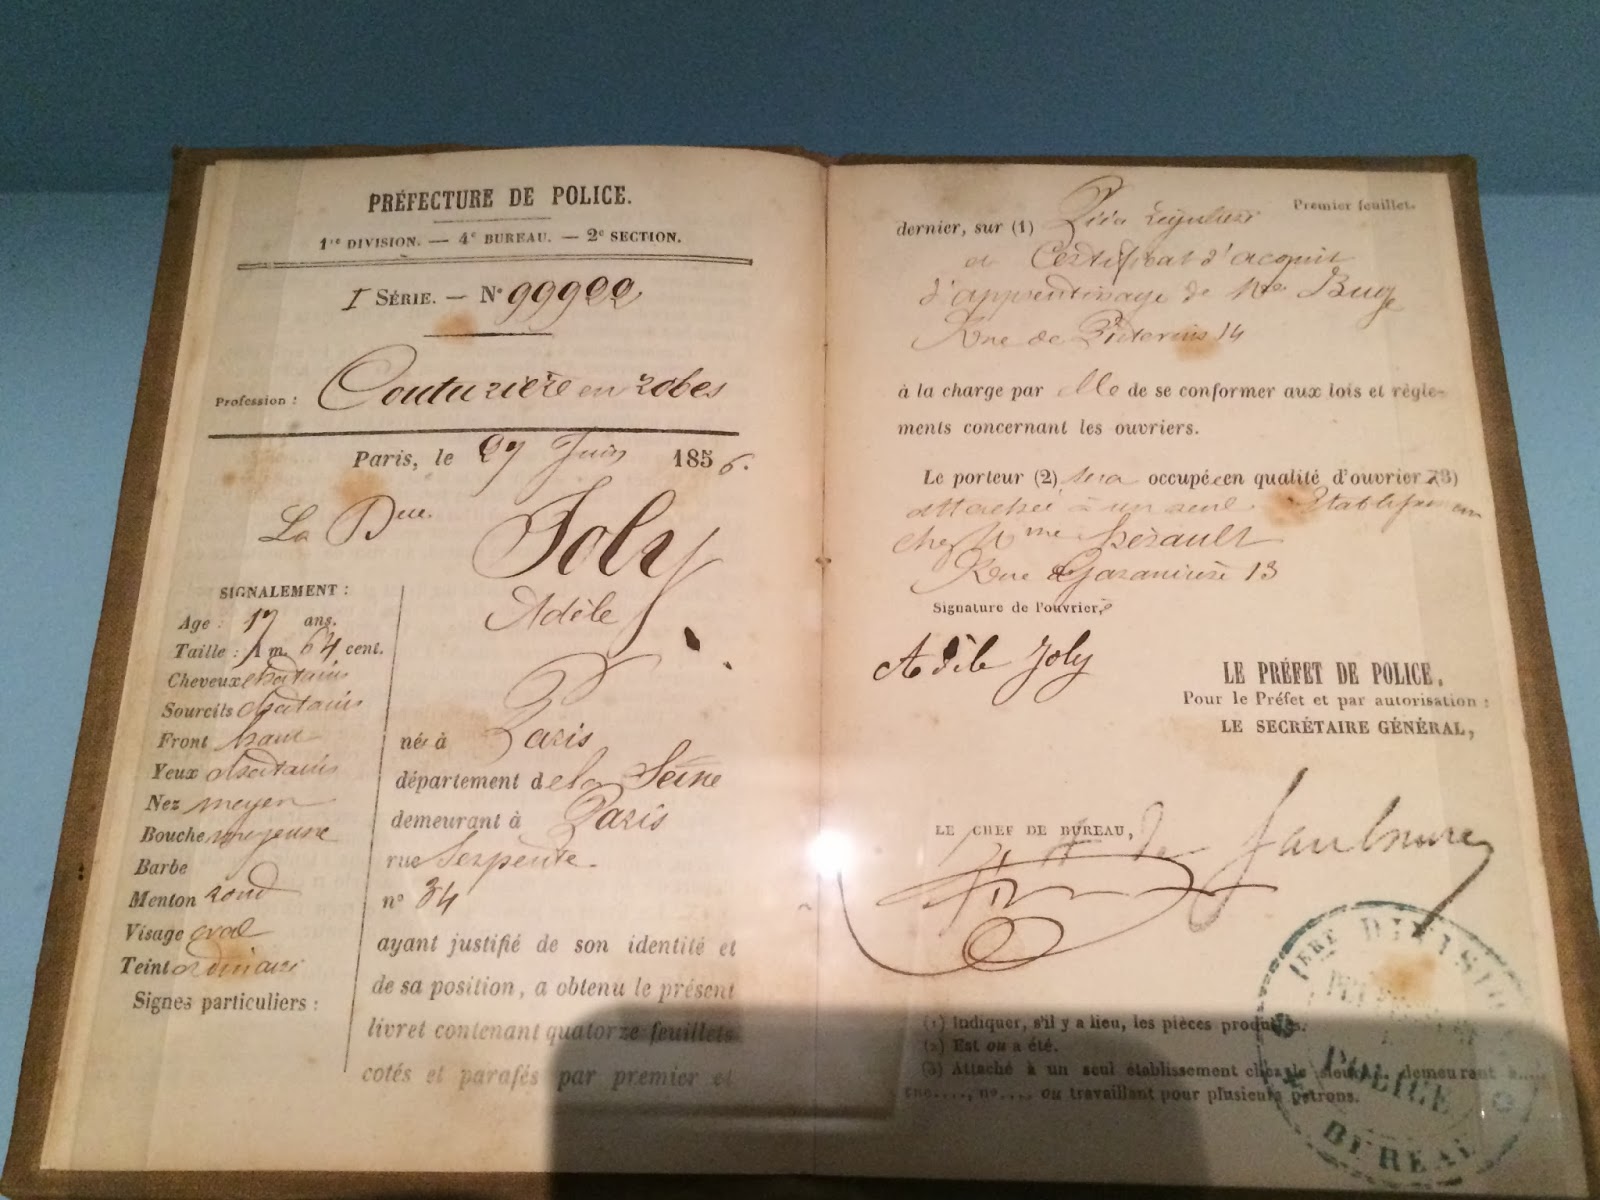 PRÉFECTURE DE POLICE.
1re DIVISION. — 4e BUREAU. — 2e SECTION.
I SÉRIE. — N°
Profession : Couturière en robes
Paris, le 27 Juin 1856.
La Dlle Joly
Adèle
SIGNALEMENT :
Age : 17 ans.
Taille : 1 m. 64 cent.
Cheveux chatains
Sourcils chatains
Front haut
Yeux chatains
Nez moyen
Bouche moyenne
Barbe
Menton rond
Visage oval
Teint ordinaire
Signes particuliers :
née à Paris
département de la Seine
demeurant à Paris
rue Serpente
n° 34
ayant justifié de son identité et
de sa position, a obtenu le présent
livret contenant quatorze feuillets
cotés et parafés par premier et
Premier feuillet.
dernier, sur (1)
et Certificat d'acquit
d'apprentissage de
Rue de 14
à la charge par elle de se conformer aux lois et règle-
ments concernant les ouvriers.
Le porteur (2) sera occupée en qualité d'ouvrière (3)
attachée à un seul Etablissement
chez Mme Hérault
Rue Garancière 13
Signature de l'ouvrière
Adèle Joly
LE PRÉFET DE POLICE,
Pour le Préfet et par autorisation :
LE SECRÉTAIRE GÉNÉRAL,
LE CHEF DE BUREAU,
(1) Indiquer, s'il y a lieu, les pièces produites.
(2) Est ou a été.
(3) Attaché à un seul établissement chez le sieur... demeurant à.....
rue...., n°.... ou travaillant pour plusieurs patrons.
1ERE DIVISION
POLICE
BUREAU